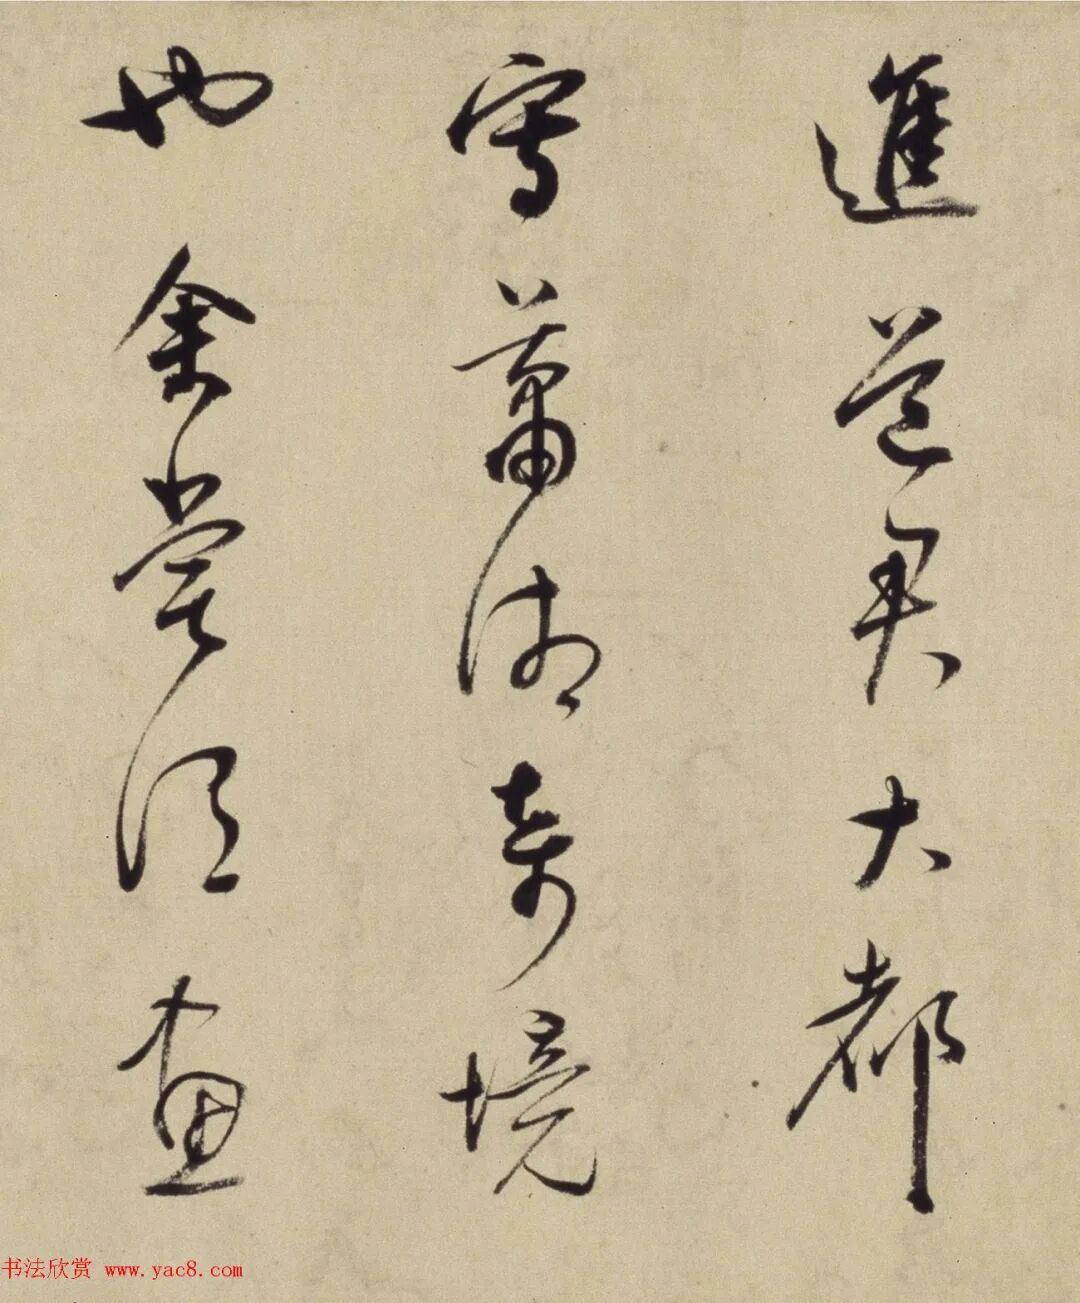 進道君大都
寫蕭湘奇境
也余嘗得畫
书法欣赏 www.yac8.com